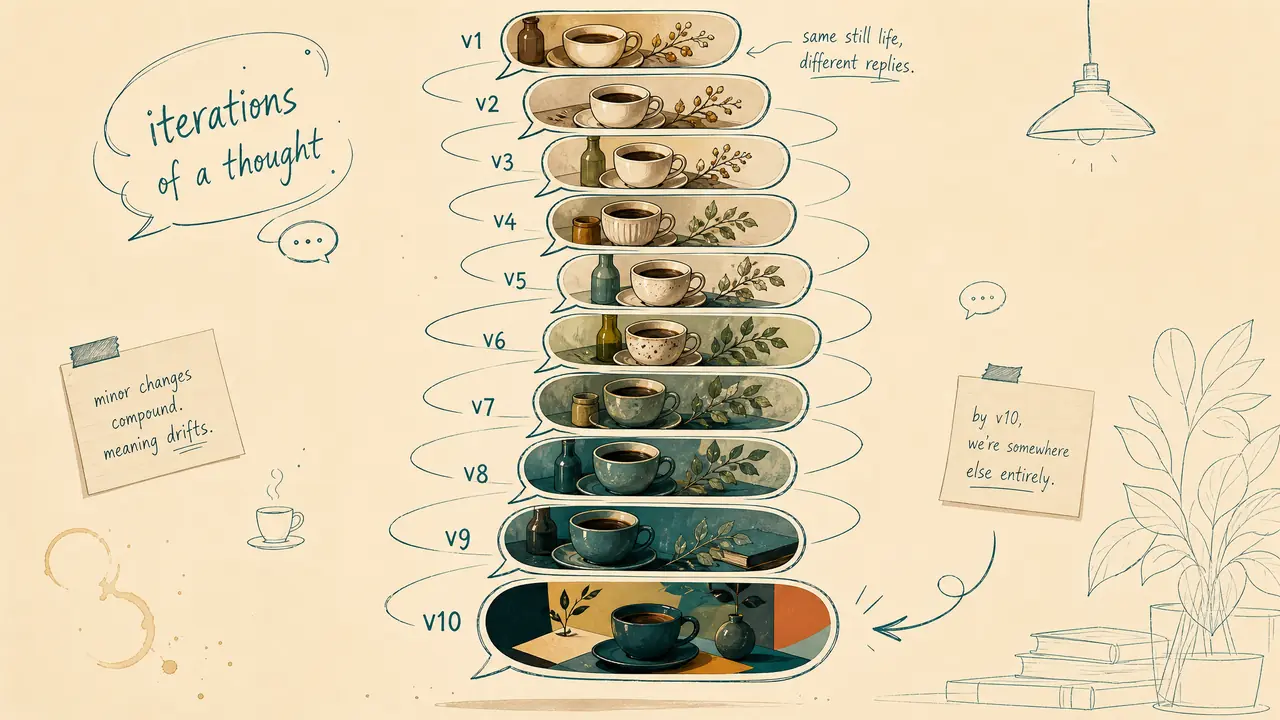 iterations
of a thought
v1
same still life,
different replies.
v2
v3
v4
v5
v6
minor changes
compound.
meaning drifts.
v7
by v10,
we're somewhere
else entirely.
v8
v9
v10